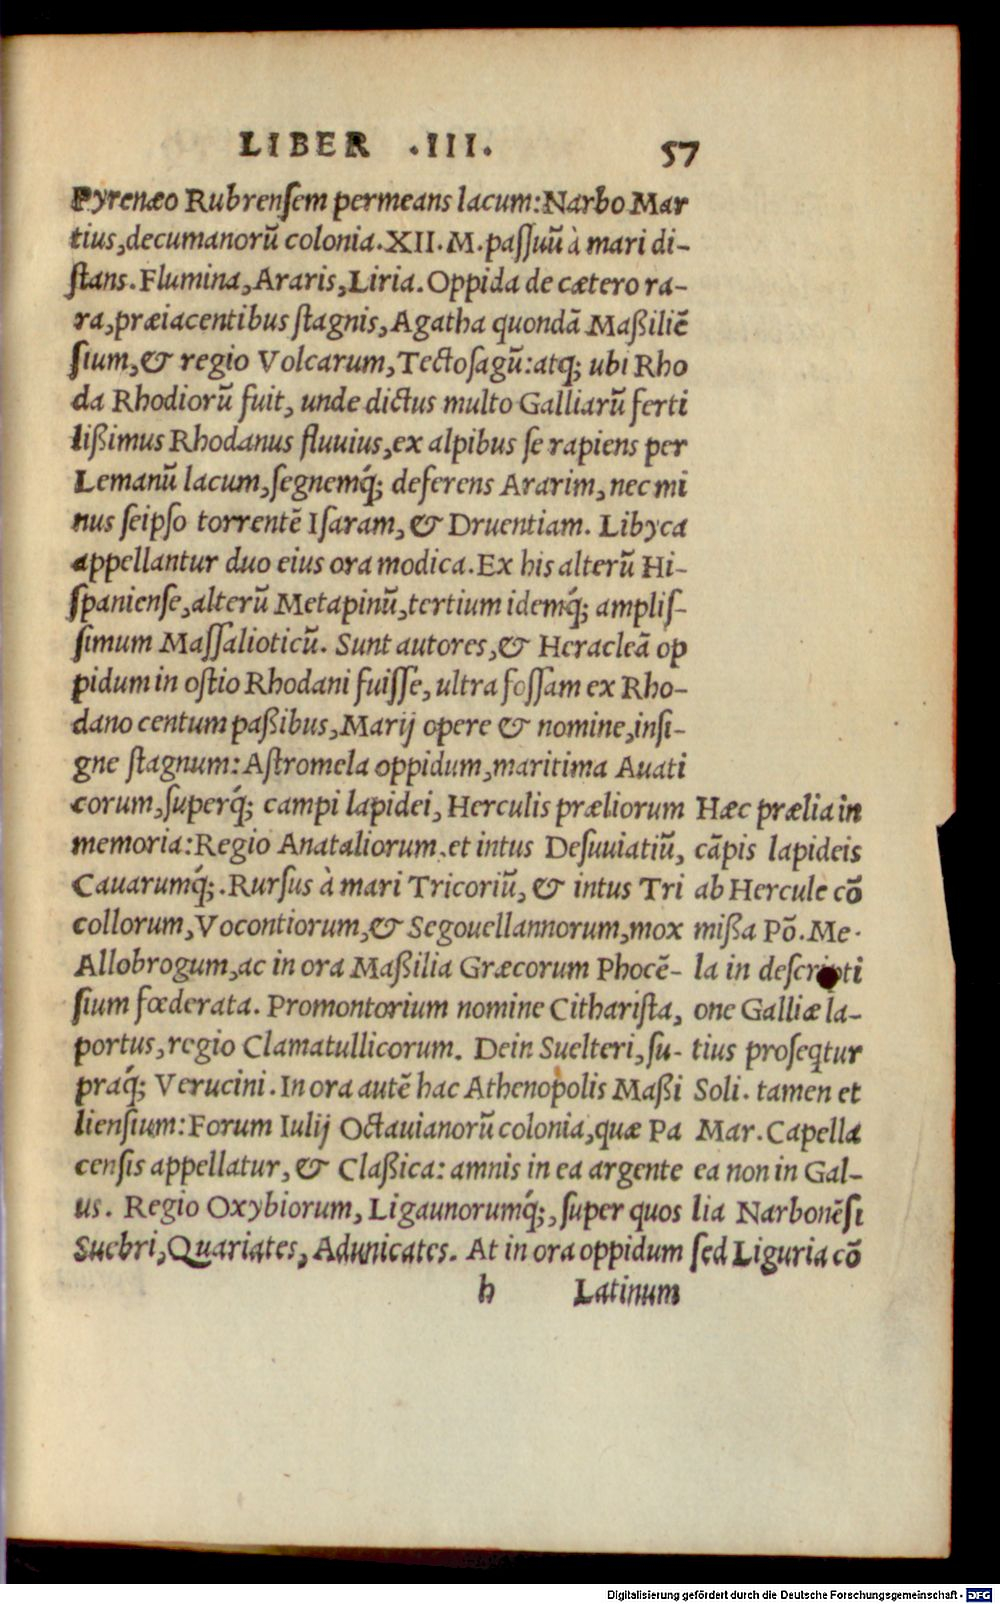 LIBER .III. 57
Pyrenæo Rubrensem permeans lacum: Narbo Mar
tius, decumanorũ colonia. XII. M. passuũ à mari di-
stans. Flumina, Araris, Liria. Oppida de cætero ra-
ra, præiacentibus stagnis, Agatha quondã Maßiliẽ
sium, & regio Volcarum, Tectosagũ: atq; ubi Rho
da Rhodiorũ fuit, unde dictus multo Galliarũ ferti
lißimus Rhodanus fluuius, ex alpibus se rapiens per
Lemanũ lacum, segnemq́; deferens Ararim, nec mi
nus seipso torrentẽ Isaram, & Druentiam. Libyca
appellantur duo eius ora modica. Ex his alterũ Hi-
spaniense, alterũ Metapinũ, tertium idemq́; amplis-
simum Massalioticũ. Sunt autores, & Heracleã op
pidum in ostio Rhodani fuisse, ultra fossam ex Rho-
dano centum paßibus, Marij opere & nomine, insi-
gne stagnum: Astromela oppidum, maritima Auati
corum, superq́; campi lapidei, Herculis præliorum
memoria: Regio Anataliorum, et intus Desuuiatiũ,
Cauarumq́;. Rursus à mari Tricoriũ, & intus Tri
collorum, Vocontiorum, & Segouellannorum, mox
Allobrogum, ac in ora Maßilia Græcorum Phocẽ-
sium fœderata. Promontorium nomine Citharista,
portus, regio Clamatullicorum. Dein Suelteri, su-
praq́; Verucini. In ora autẽ hac Athenopolis Maßi
liensium: Forum Iulij Octauianorũ colonia, quæ Pa
censis appellatur, & Claßica: amnis in ea argente
us. Regio Oxybiorum, Ligaunorumq́;, super quos
Suebri, Quariates, Adunicates. At in ora oppidum
h Latinum
Hæc prælia in
cãpis lapideis
ab Hercule cõ
mißa Põ. Me.
la in descripti
one Galliæ la-
tius proseqtur
Soli. tamen et
Mar. Capella
ea non in Gal-
lia Narbonẽsi
sed Liguria cõ
Digitalisierung gefördert durch die Deutsche Forschungsgemeinschaft - DFG